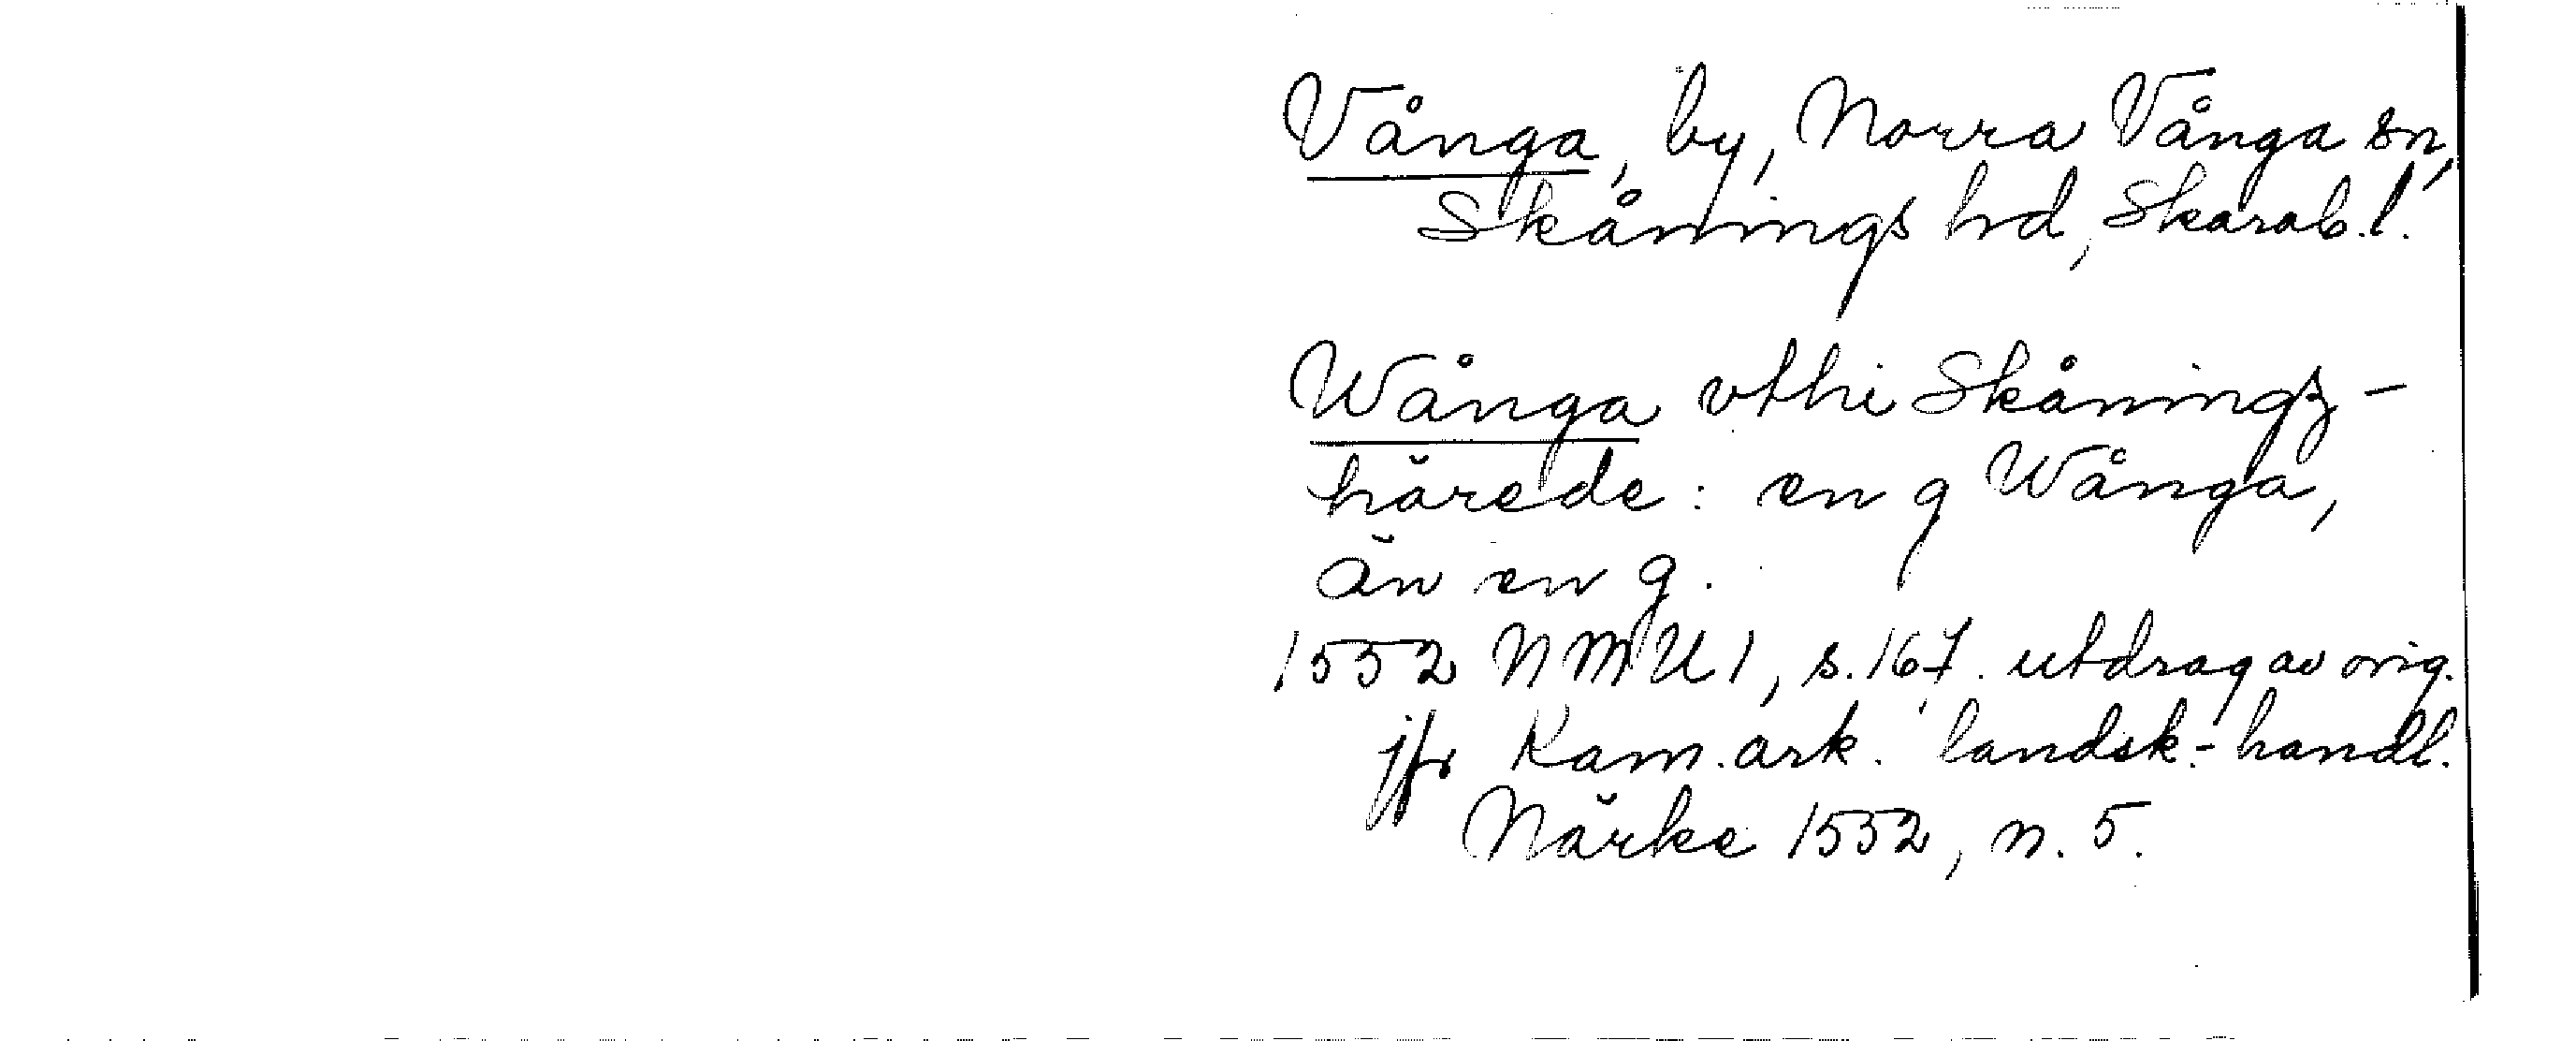 Vånga, by, Norra Vånga sn,
Skånings hd, Skarab.l.
Wånga vthi Skåningz-
härede: en g Wånga,
än en g.
1552 NMU 1, s. 167. utdrag av orig.
jfr Kam.ark. landsk.-handl.
Närke 1552, n. 5.